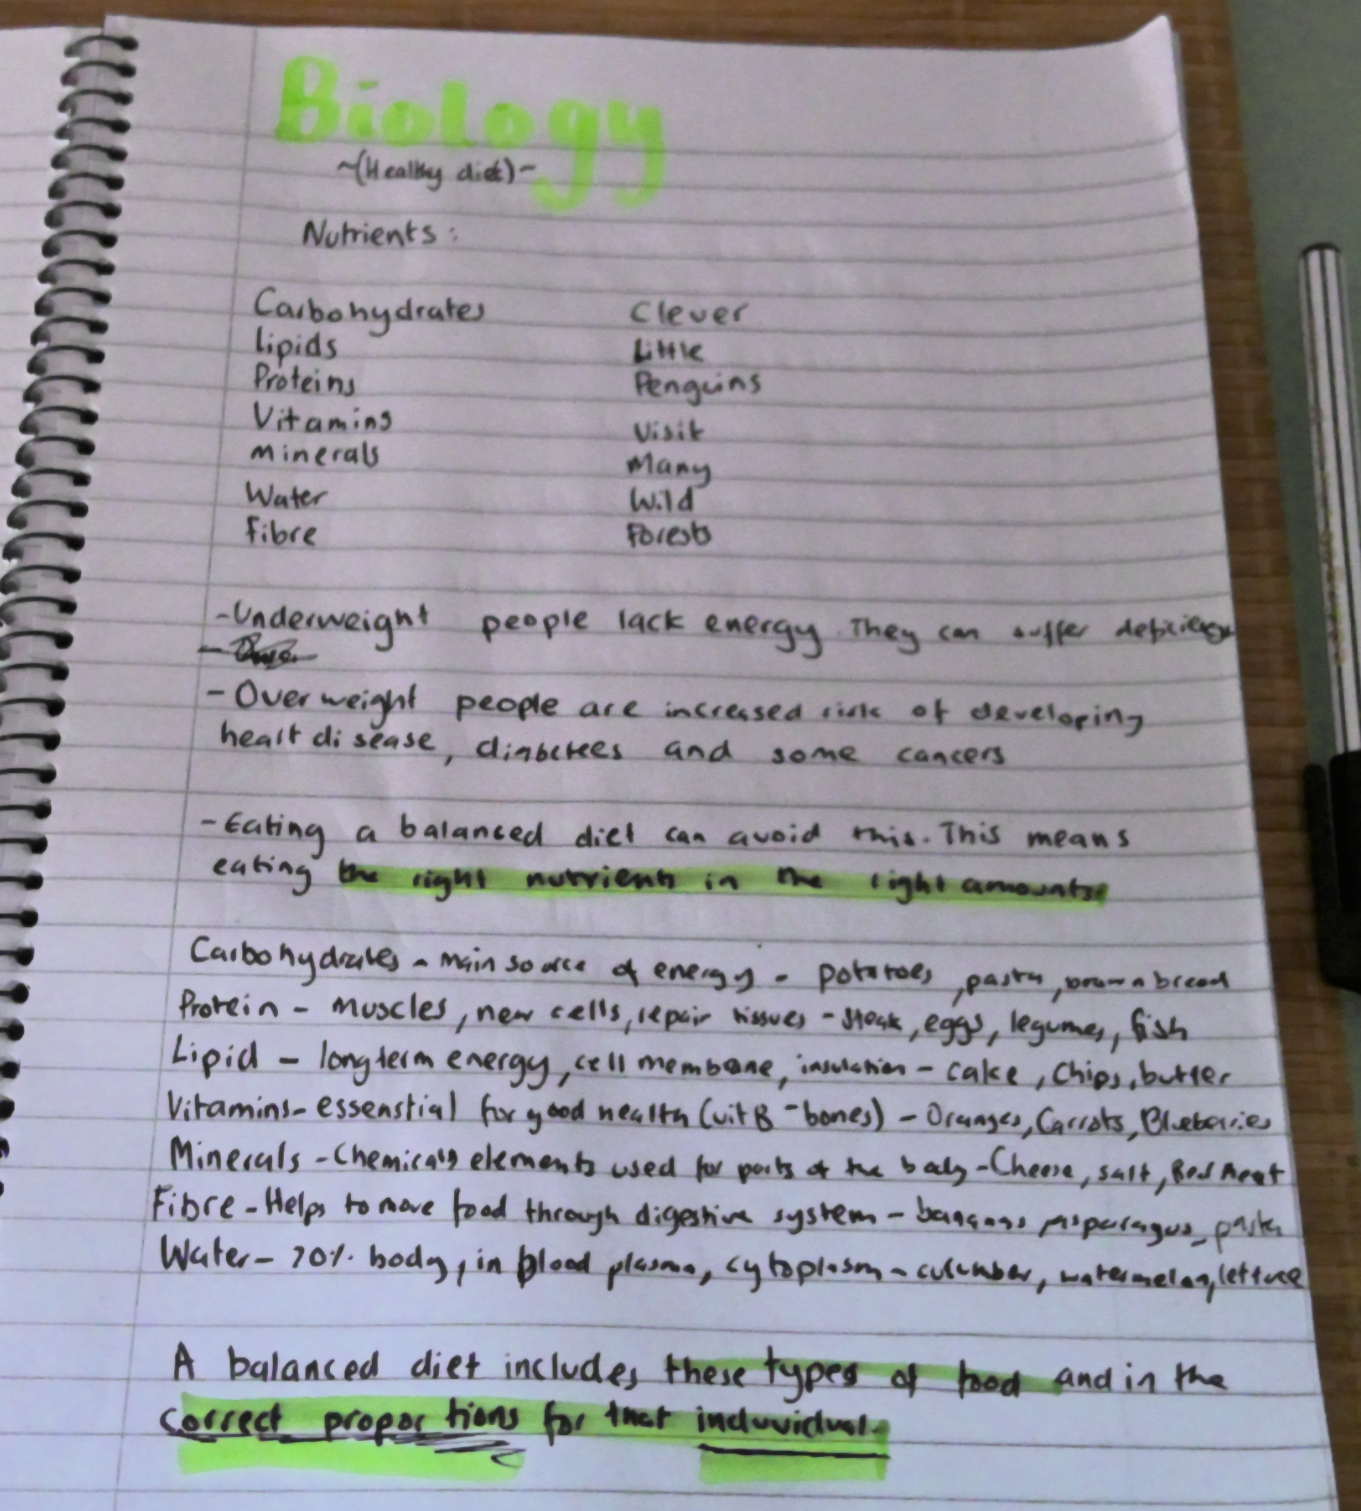 Biology
~(Healthy diet)~
Nutrients:
Carbohydrates Clever
Lipids Little
Proteins Penguins
Vitamins Visit
Minerals Many
Water Wild
Fibre Forests
-Underweight people lack energy. They can suffer deficiency
-Overweight people are increased risk of developing
heart disease, diabetees and some cancers
-Eating a balanced diet can avoid this. This means
eating the right nutrients in the right amounts.
Carbohydrates - main source of energy - potatoes, pasta, brown bread
Protein - muscles, new cells, repair tissues - steak, eggs, legumes, fish
Lipid - longterm energy, cell membane, insulation - cake, chips, butter
Vitamins - essenstial for good health (vit B - bones) - Oranges, Carrots, Blueberries
Minerals - Chemicals elements used for parts of the body - Cheese, salt, Red meat
Fibre - Helps to move food through digestive system - bananas asparagus, pasta
Water - 70% body, in blood plasma, cytoplasm - cucumber, watermelon, lettuce
A balanced diet includes these types of food and in the
correct proportions for that induvidual.